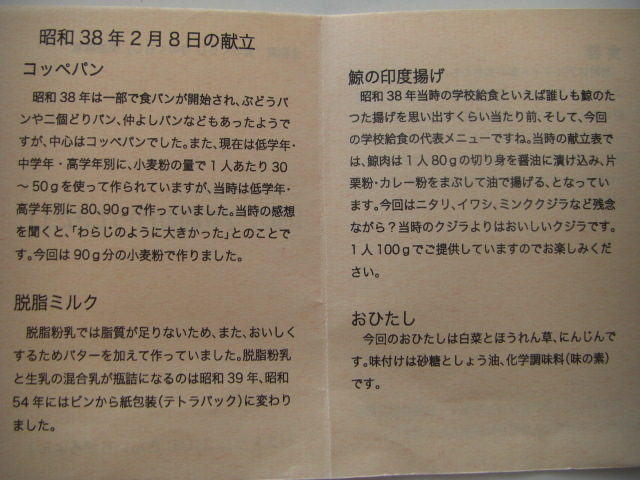 昭和38年2月8日の献立
コッペパン
昭和38年は一部で食パンが開始され、ぶどうパ
ンや二個どりパン、仲よしパンなどもあったようで
すが、中心はコッペパンでした。また、現在は低学年・
中学年・高学年別に、小麦粉の量で1人あたり30
～50gを使って作られていますが、当時は低学年・
高学年別に80、90gで作っていました。当時の感想
を聞くと、「わらじのように大きかった」とのことで
す。今回は90g分の小麦粉で作りました。
脱脂ミルク
脱脂粉乳では脂質が足りないため、また、おいしく
するためバターを加えて作っていました。脱脂粉乳
と生乳の混合乳が瓶詰になるのは昭和39年、昭和
54年にはビンから紙包装(テトラパック)に変わり
ました。
鯨の印度揚げ
昭和38年当時の学校給食といえば誰しも鯨のた
つた揚げを思い出すくらい当たり前、そして、今回
の学校給食の代表メニューですね。当時の献立表で
は、鯨肉は1人80gの切り身を醤油に漬け込み、片
栗粉・カレー粉をまぶして油で揚げる、となってい
ます。今回はニタリ、イワシ、ミンククジラなど残念
ながら？当時のクジラよりはおいしいクジラです。
1人100gでご提供していますのでお楽しみくだ
さい。
おひたし
今回のおひたしは白菜とほうれん草、にんじんで
す。味付けは砂糖としょう油、化学調味料(味の素)
です。